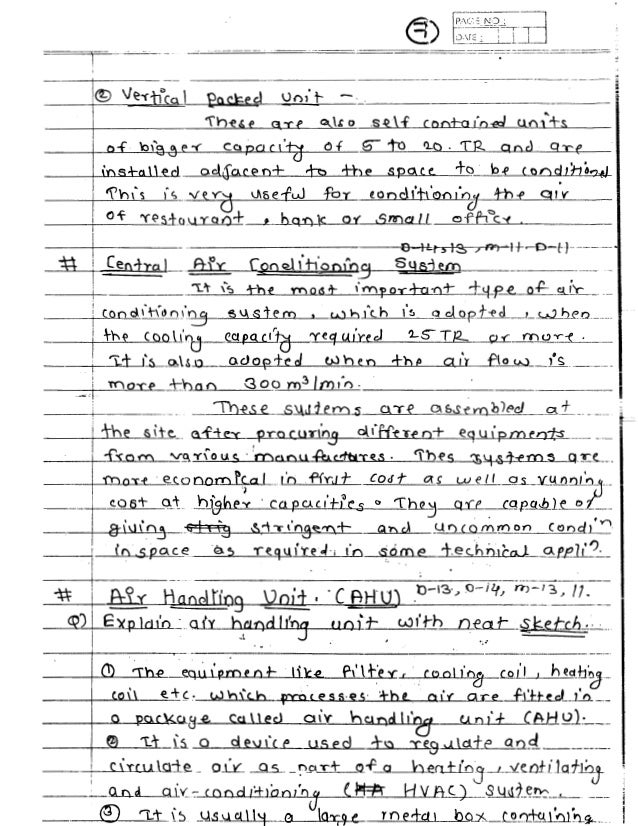 7
PAGE NO.:
DATE:
② Vertical Packed Unit -
These are also self contained units
of bigger capacity of 5 to 20. TR and are
installed adjacent to the space to be conditioned
This is very useful for conditioning the air
of restourant, bank or small office.
D-14, 13, m-11, D-11
# Central Air Conditioning System
It is the most important type of air
conditioning system, which is adopted, when
the cooling capacity required 25 TR or more.
It is also adopted when the air flow is
more than 300 m³/min.
These systems are assembled at
the site after procuring different equipments
from various manufactures. Thes systems are
more economical in first cost as well as running
cost at higher capacities. They are capable of
giving stringent and uncommon condiⁿ
in space as required in some technical appliⁿ.
# Air Handling Unit. (AHU) D-13, D-14, m-13, 11.
Q) Explain air handling unit with neat sketch.
① The equipment like filter, cooling coil, heating
coil etc. which processes the air are fitted in
a package called air handling unit (AHU).
② It is a device used to regulate and
circulate air as part of a heating, ventilating
and air-conditioning (HVAC) system.
③ It is usually a large metal box containing